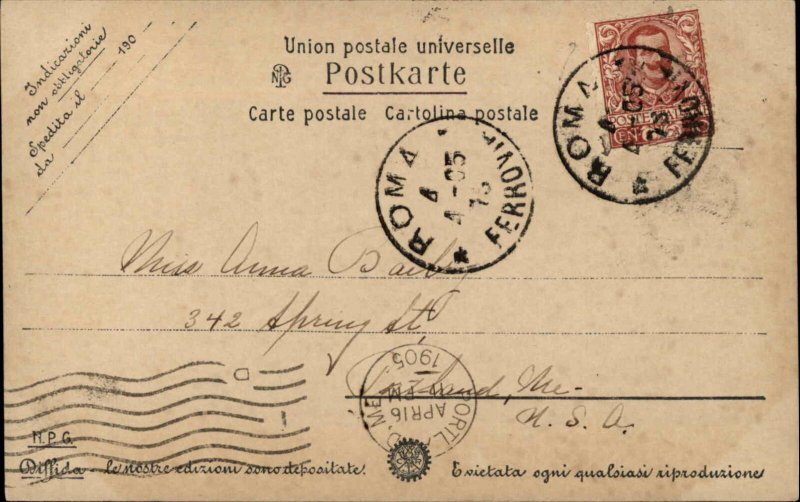 Indicazioni
non obbligatorie
Spedita il 190
da
Union postale universelle
NPG Postkarte
Carte postale Cartolina postale
ROMA FERROVIA
4
4-05
ROMA FERROVIA
4-05
POSTE
CEN
Miss Anna
342 Spring St
Portland, Me.
U.S.A.
PORTLAND, ME.
APR 16
1905
N.P.G.
Diffida - le nostre edizioni sono depositate. E vietata ogni qualsiasi riproduzione